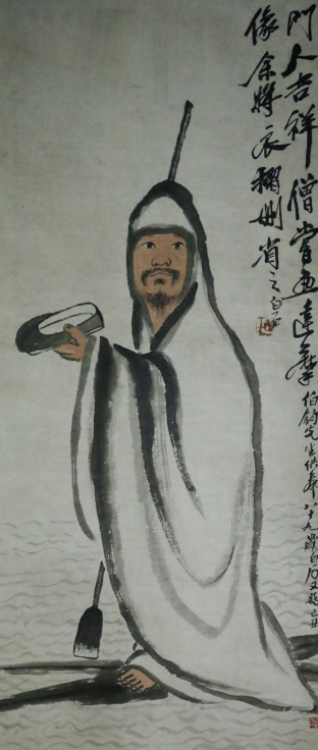 門人吉祥僧嘗畫達摩
像余將衣褶刪省之白石
伯鈞先生供奉八十九歲白石又題